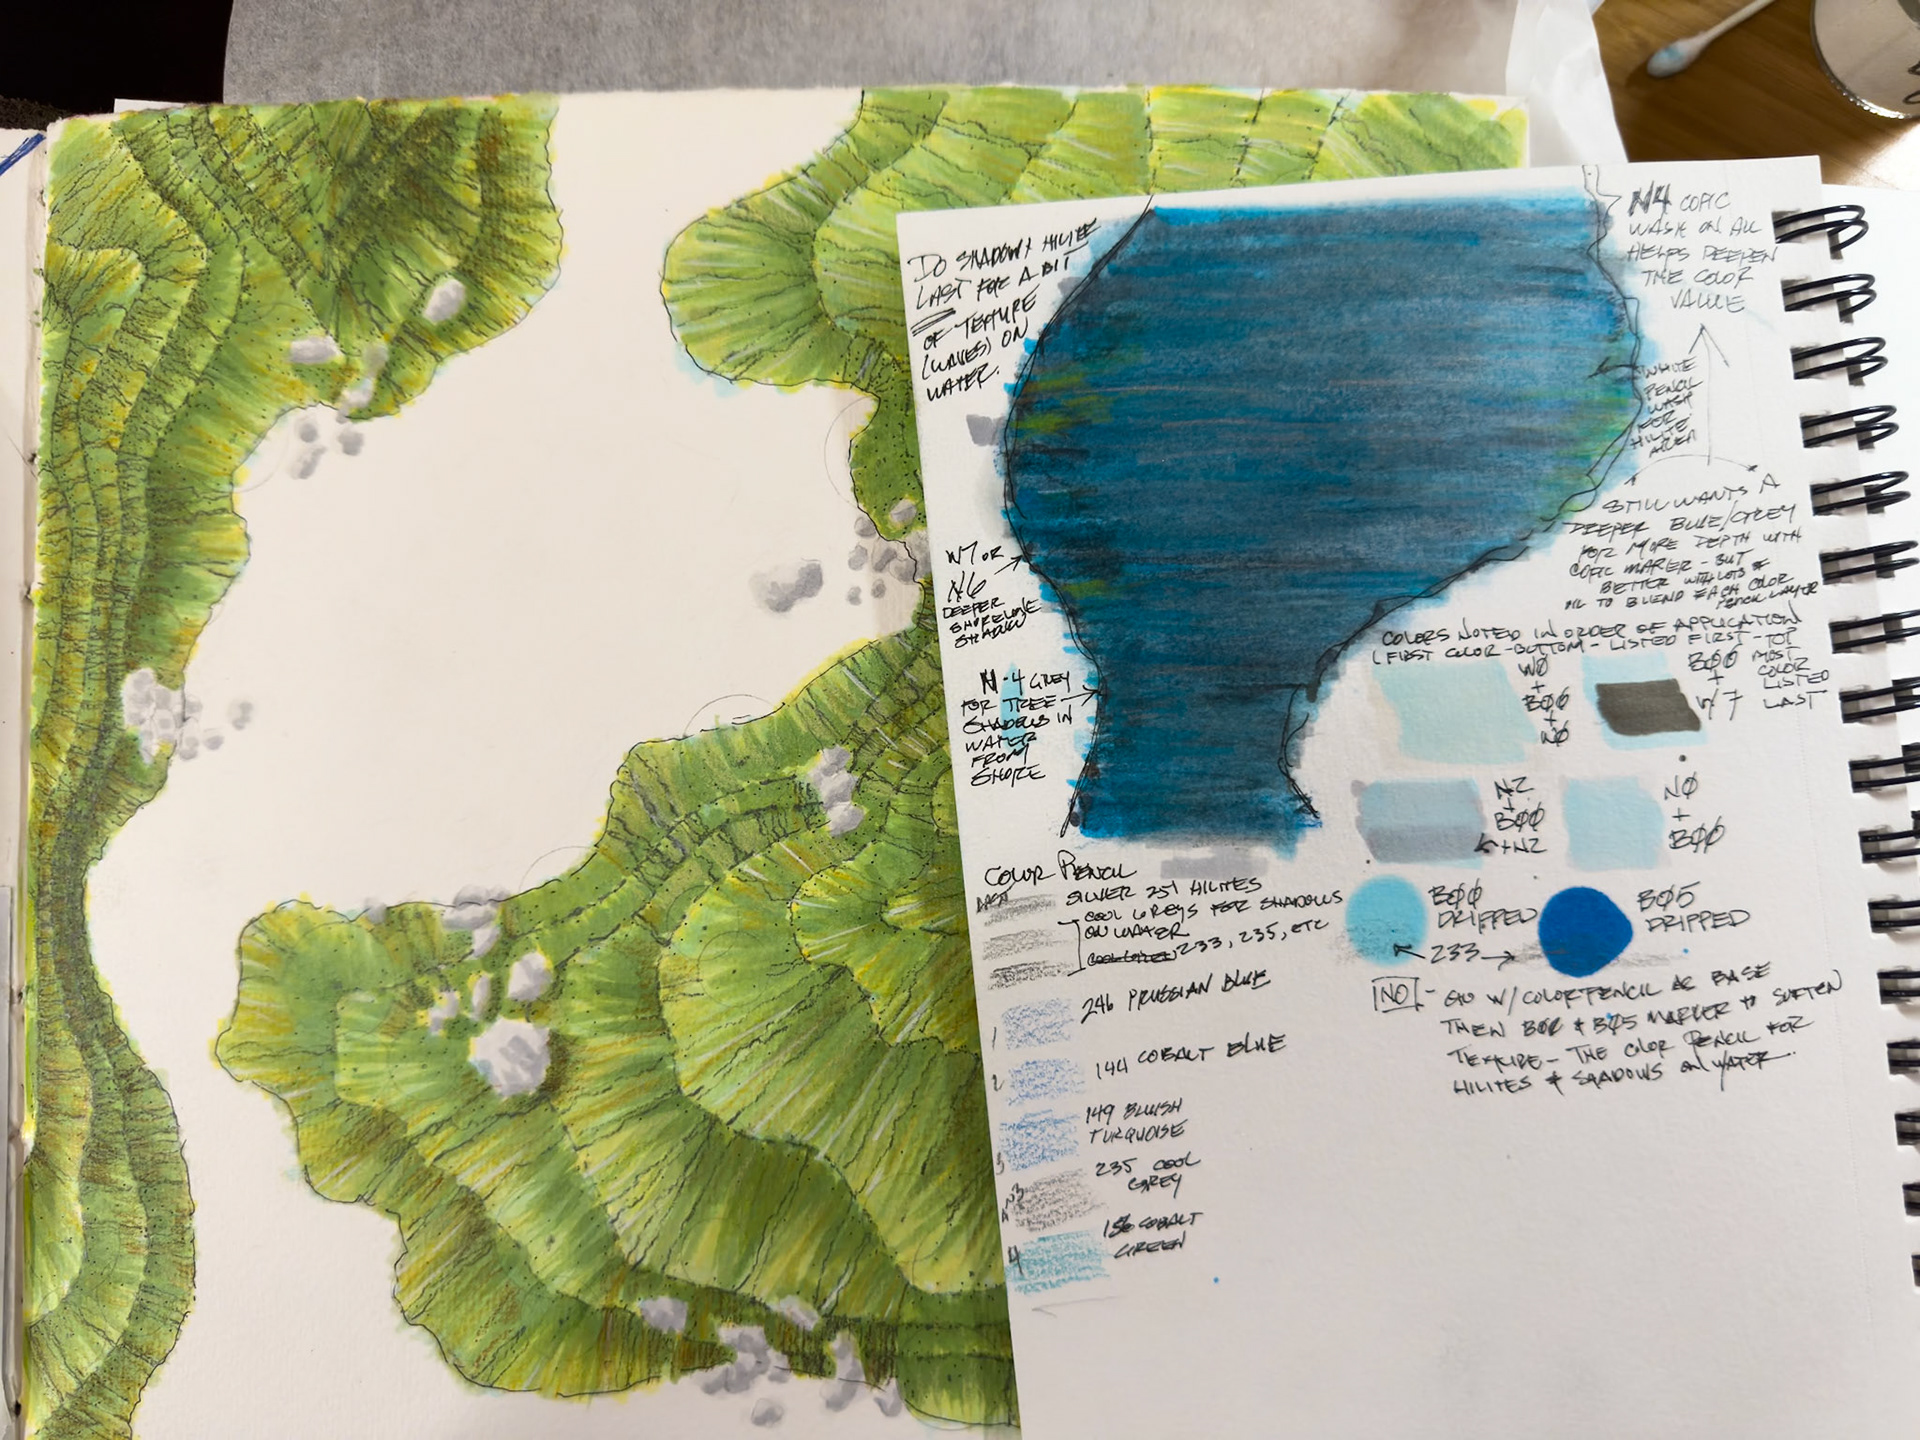 DO SHADOW & HILITE
LAST FOR A BIT
OF TEXTURE
(WAVES) ON
WATER.
N4 COPIC
WASH ON ALL
HELPS DEEPEN
THE COLOR
VALUE
WHITE
PENCIL
WASH
FOR
HILITE
AREA
STILL WANTS A
DEEPER BLUE/GREY
FOR MORE DEPTH WITH
COPIC MARKER - BUT
BETTER WITH LOTS OF
OIL TO BLEND EACH COLOR
PENCIL LAYER
W7 OR
N6
DEEPER
SHORELINE
SHADOW
N-4 GREY
FOR TREE
SHADOWS IN
WATER
FROM
SHORE
COLORS NOTED IN ORDER OF APPLICATION
(FIRST COLOR-BOTTOM-LISTED FIRST-TOP
MOST
COLOR
LISTED
LAST
WØ
+
BØØ
+
NØ
BØØ
+
W7
N2
+
BØØ
+N2
NØ
+
BØØ
BØØ
DRIPPED
BØ5
DRIPPED
233
NO - GO W/COLOR PENCIL AS BASE
THEN BØØ & BØ5 MARKER TO SOFTEN
TEXTURE - THE COLOR PENCIL FOR
HILITES & SHADOWS ON WATER.
COLOR PENCIL
SILVER 251 HILITES
COOL GREYS FOR SHADOWS
ON WATER
233, 235, ETC
1 246 PRUSSIAN BLUE
2 144 COBALT BLUE
3 149 BLUISH
TURQUOISE
235 COOL
GREY
4 156 COBALT
GREEN